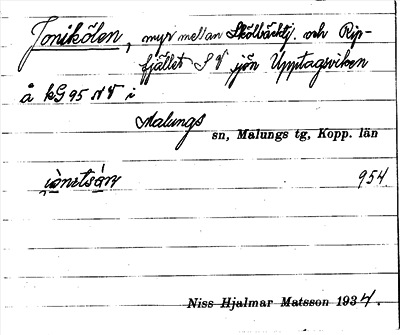 Jonikölen, myr mellan Skölbärktj. och Rip-
fjället S V sjön Upptagsviken
å kG 95 N V i
Malungs
sn, Malungs tg, Kopp. län
954
Niss Hjalmar Matsson 1934.